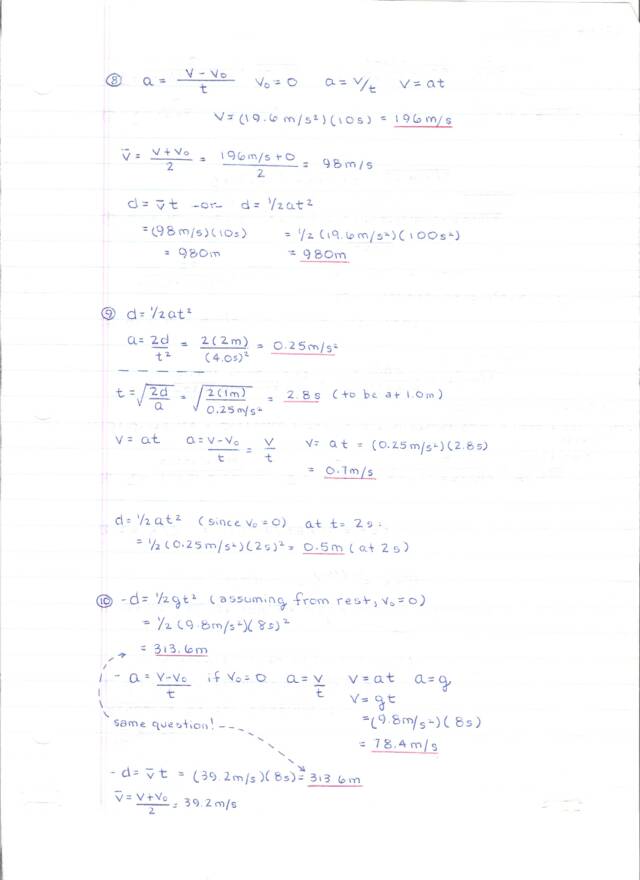 ⑧ a = (v - v₀)/t v₀ = 0 a = v/t v = at
v = (19.6 m/s²)(10s) = 196 m/s
v̄ = (v + v₀)/2 = (196 m/s + 0)/2 = 98 m/s
d = v̄ t -or- d = 1/2 at²
= (98 m/s)(10s) = 1/2 (19.6 m/s²)(100s²)
= 980m = 980m
⑨ d = 1/2 at²
a = 2d/t² = 2(2m)/(4.0s)² = 0.25 m/s²
- - - - -
t = √(2d/a) = √(2(1m)/0.25 m/s²) = 2.8s (to be at 1.0m)
v = at a = (v - v₀)/t = v/t v = at = (0.25 m/s²)(2.8s)
= 0.7 m/s
d = 1/2 at² (since v₀ = 0) at t = 2s:
= 1/2 (0.25 m/s²)(2s)² = 0.5m (at 2s)
⑩ - d = 1/2 gt² (assuming from rest, v₀ = 0)
= 1/2 (9.8 m/s²)(8s)²
= 313.6m
- a = (v - v₀)/t if v₀ = 0 a = v/t v = at a = g
v = gt
= (9.8 m/s²)(8s)
same question!
= 78.4 m/s
- d = v̄ t = (39.2 m/s)(8s) = 313.6m
v̄ = (v + v₀)/2 = 39.2 m/s